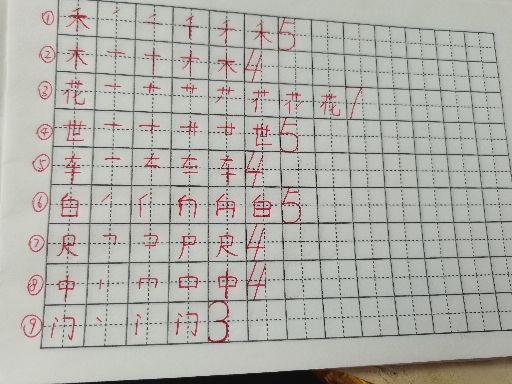 ① 禾 丿 二 千 才 禾 5
② 木 一 十 才 木 4
③ 花 一 十 艹 艹 花 花 花 7
④ 世 一 十 廿 世 5
⑤ 车 一 车 车 4
⑥ 丿 冂 5
⑦ 尺 ㇕ コ 尸 尺 4
⑧ 中 丨 冂 口 中 4
⑨ 门 丶 门 3